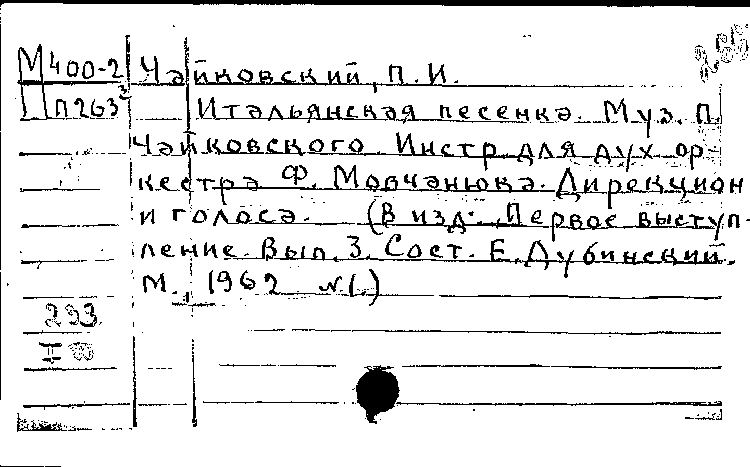 М400-2 Чайковский, П. И.
П263³ Итальянская песенка. Муз. П.
Чайковского. Инстр. для дух. ор-
кестра Ф. Мовчанюка. Дирекцион
и голоса. (В изд.: Первое выступ-
ление. Вып. 3. Сост. Е. Дубинский.
М., 1962 №1.)
233